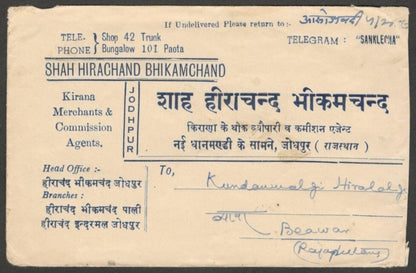 If Undelivered Please return to:-
TELE- PHONE } Shop 42 Trunk
Bungalow 101 Paota
TELEGRAM : "SANKLECHA"
SHAH HIRACHAND BHIKAMCHAND
Kirana
Merchants &
Commission
Agents.
JODHPUR
शाह हीराचन्द भीकमचन्द
किराणा के थोक ब्यौपारी व कमीशन एजेन्ट
नई धानमण्डी के सामने, जोधपुर ( राजस्थान )
Head Office :-
हीराचंद भीकमचंद जोधपुर
Branches :
हीराचंद भीकमचंद पाली
हीराचंद इन्दरमल जोधपुर
To,
Kundanmalji Hiralalji
Beawar
(Rajaputana)